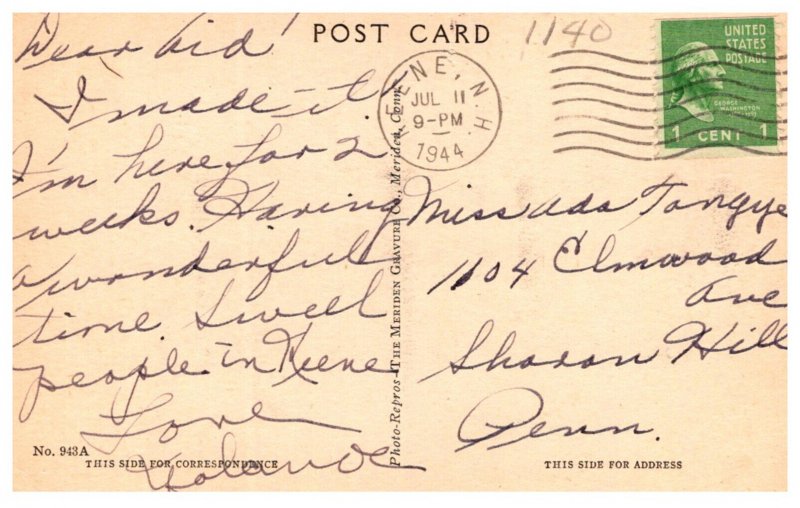 POST CARD
1140
UNITED
STATES
POSTAGE
GEORGE
WASHINGTON
1 CENT 1
KEENE, N.H.
JUL 11
9-PM
1944
Dear Aid
I made it
I'm here for 2
weeks. Having
a wonderful
time. Swell
people in Keene
Love
Yolande
Miss Ada Tongye
1104 Elmwood
Ave
Sharon Hill
Penn.
Photo-Repros-THE MERIDEN GRAVURE CO., Meriden, Conn.
No. 943A
THIS SIDE FOR CORRESPONDENCE
THIS SIDE FOR ADDRESS